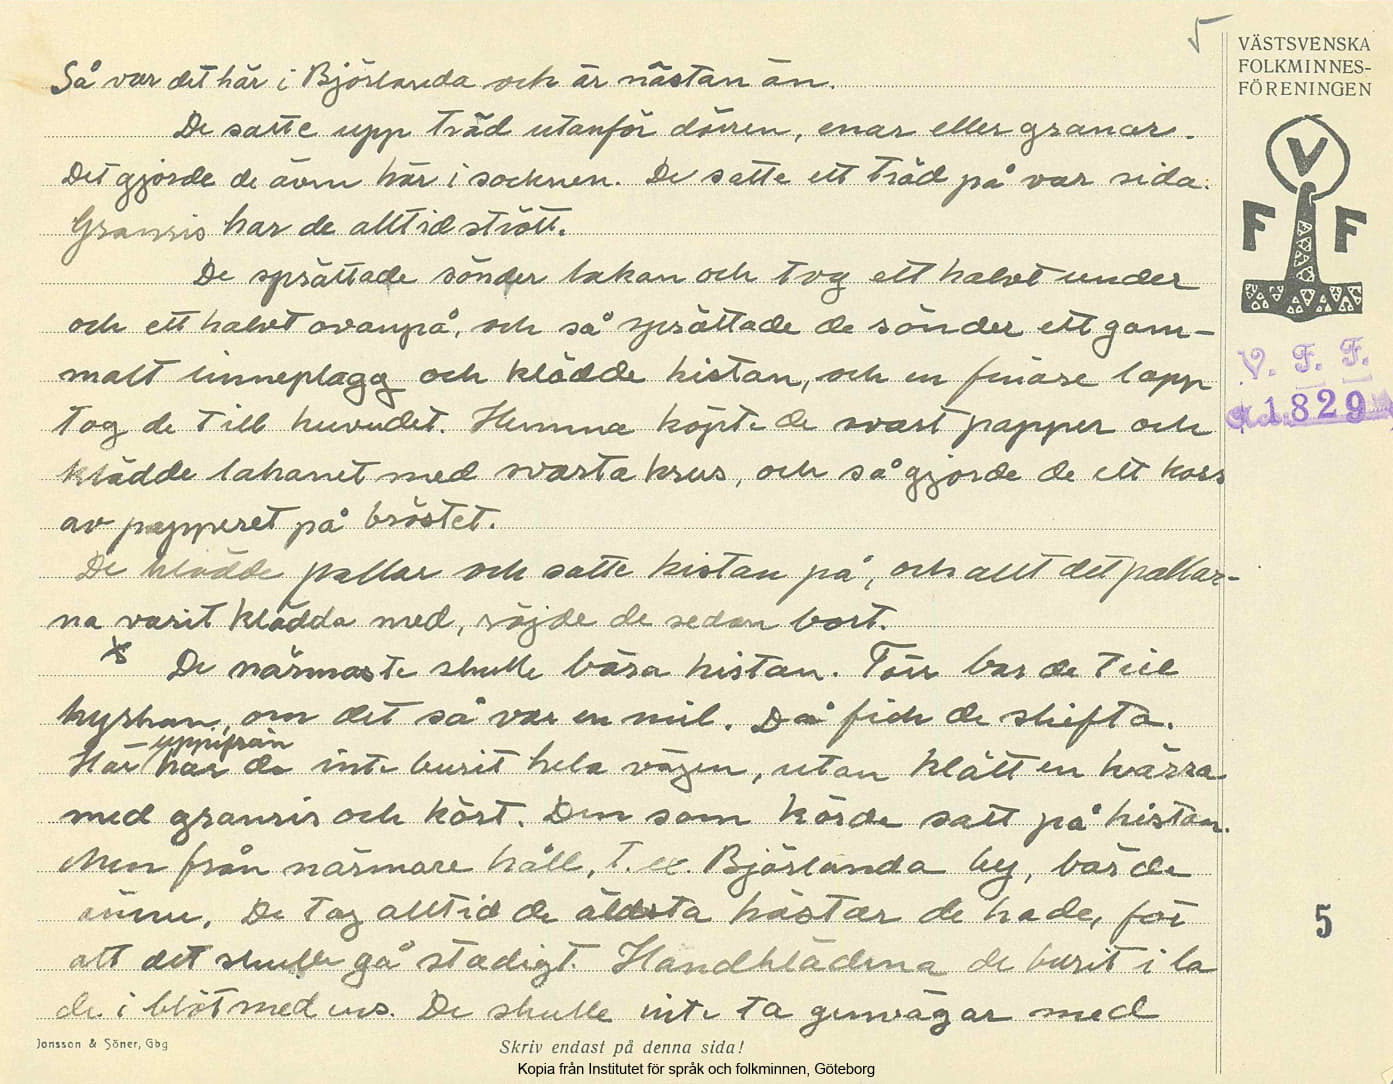 5
VÄSTSVENSKA
FOLKMINNES-
FÖRENINGEN
V
F F
V. F. F.
1829
Så var det här i Björlanda och är nästan än.
De satte upp träd utanför dörren, enar eller granar.
Det gjorde de även här i socknen. De satte ett träd på var sida.
Granris har de alltid strött.
De sprättade sönder lakan och tog ett halvt under
och ett halvt ovanpå, och så sprättade de sönder ett gam-
malt linneplagg och klädde kistan, och en finare lapp
tog de till huvudet. Hemma köpte de svart papper och
klädde lakanet med svarta krus, och så gjorde de ett kors
av papperet på bröstet.
De klädde pallar och satte kistan på, och allt det pallar-
na varit klädda med, röjde de sedan bort.
x De närmaste skulle bära kistan. Förr bar de till
kyrkan, om det så var en mil. Då fick de skifta.
uppifrån
Här har de inte burit hela vägen, utan klätt en kärra
med granris och kört. Den som körde satt på kistan.
Men från närmare håll, t. ex. Björlanda by, bar de
ännu. De tog alltid de äldsta hästar de hade, för
att det skulle gå stadigt. Handklädena de burit i la
de i blöt med ens. De skulle inte ta genvägar med
5
Jonsson & Söner, Gbg
Skriv endast på denna sida!
Kopia från Institutet för språk och folkminnen, Göteborg